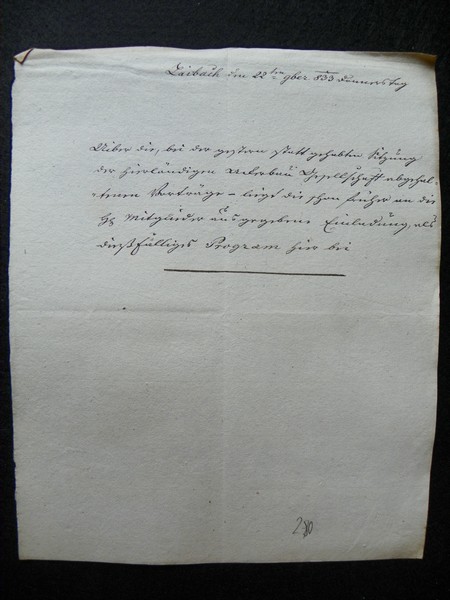 Laibach den 22ten 9ber 833 Donnerstag
Uiber die, bei der gestern statt gehabten Sitzung
der hierländigen Ackerbau Gesellschaft abgehal-
tenen Vorträge – liegt die schon früher an die
HH Mitglieder ausgegebene Einladung, als
dießfälliges Program hier bei
280